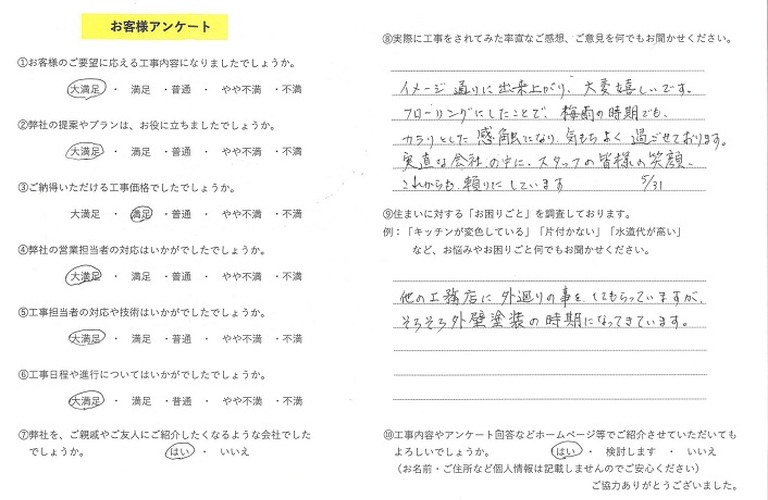 お客様アンケート
①お客様のご要望に応える工事内容になりましたでしょうか。
大満足 ・ 満足 ・普通 ・ やや不満 ・不満
②弊社の提案やプランは、お役に立ちましたでしょうか。
大満足 ・ 満足 ・普通 ・ やや不満 ・不満
③ご納得いただける工事価格でしたでしょうか。
大満足 ・ 満足 ・普通 ・ やや不満 ・不満
④弊社の営業担当者の対応はいかがでしたでしょうか。
大満足 ・ 満足 ・普通 ・ やや不満 ・不満
⑤工事担当者の対応や技術はいかがでしたでしょうか。
大満足 ・ 満足 ・普通 ・ やや不満 ・不満
⑥工事日程や進行についてはいかがでしたでしょうか。
大満足 ・ 満足 ・普通 ・ やや不満 ・不満
⑦弊社を、ご親戚やご友人にご紹介したくなるような会社でした
でしょうか。 はい ・ いいえ
⑧実際に工事をされてみた率直なご感想、ご意見を何でもお聞かせください。
イメージ通りに出来上がり、大変嬉しいです。
フローリングにしたことで、梅雨の時期でも、
カラリとした感触になり、気もちよく過ごせております。
実直な会社の中に、スタッフの皆様の笑顔、
これからも頼りにしています 5/31
⑨住まいに対する「お困りごと」を調査しております。
例：「キッチンが変色している」「片付かない」「水道代が高い」
など、お悩みやお困りごと何でもお聞かせください。
他の工務店に外廻りの事をしてもらっていますが、
そろそろ外壁塗装の時期になってきています。
⑩工事内容やアンケート回答などホームページ等でご紹介させていただいても
よろしいでしょうか。 はい ・ 検討します ・ いいえ
（お名前・ご住所など個人情報は記載しませんのでご安心ください）
ご協力ありがとうございました。